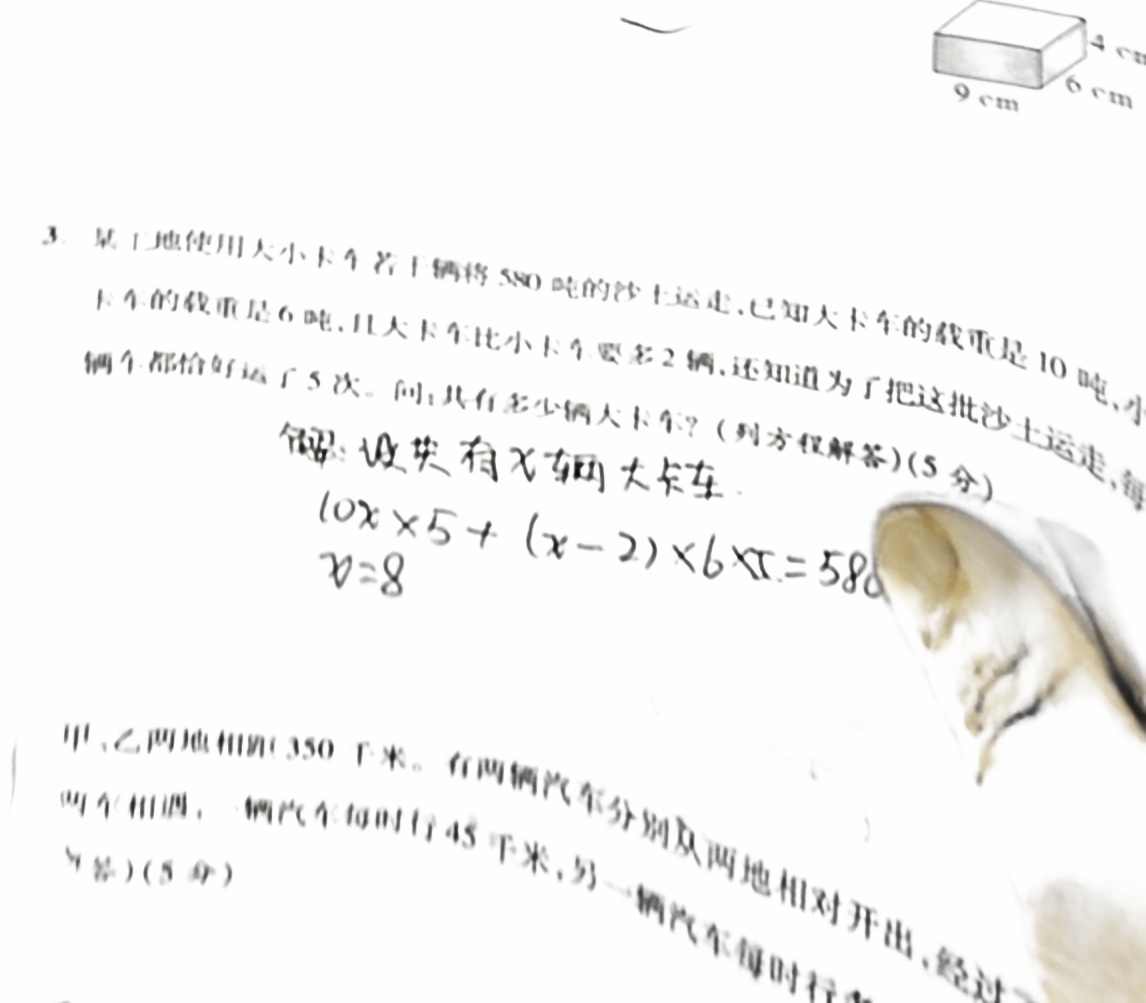 4 cm
6 cm
9 cm
3. 某工地使用大小卡车若干辆将580吨的沙土运走,已知大卡车的载重是10吨,小
卡车的载重是6吨,且大卡车比小卡车要多2辆,还知道为了把这批沙土运走,每
辆车都恰好运了5次。问:共有多少辆大卡车?(列方程解答)(5分)
解:设共有x辆大卡车.
10x×5+(x-2)×6×5=580
x=8
甲、乙两地相距350千米。有两辆汽车分别从两地相对开出,经过
两车相遇,一辆汽车每时行45千米,另一辆汽车每时行
答)(5分)